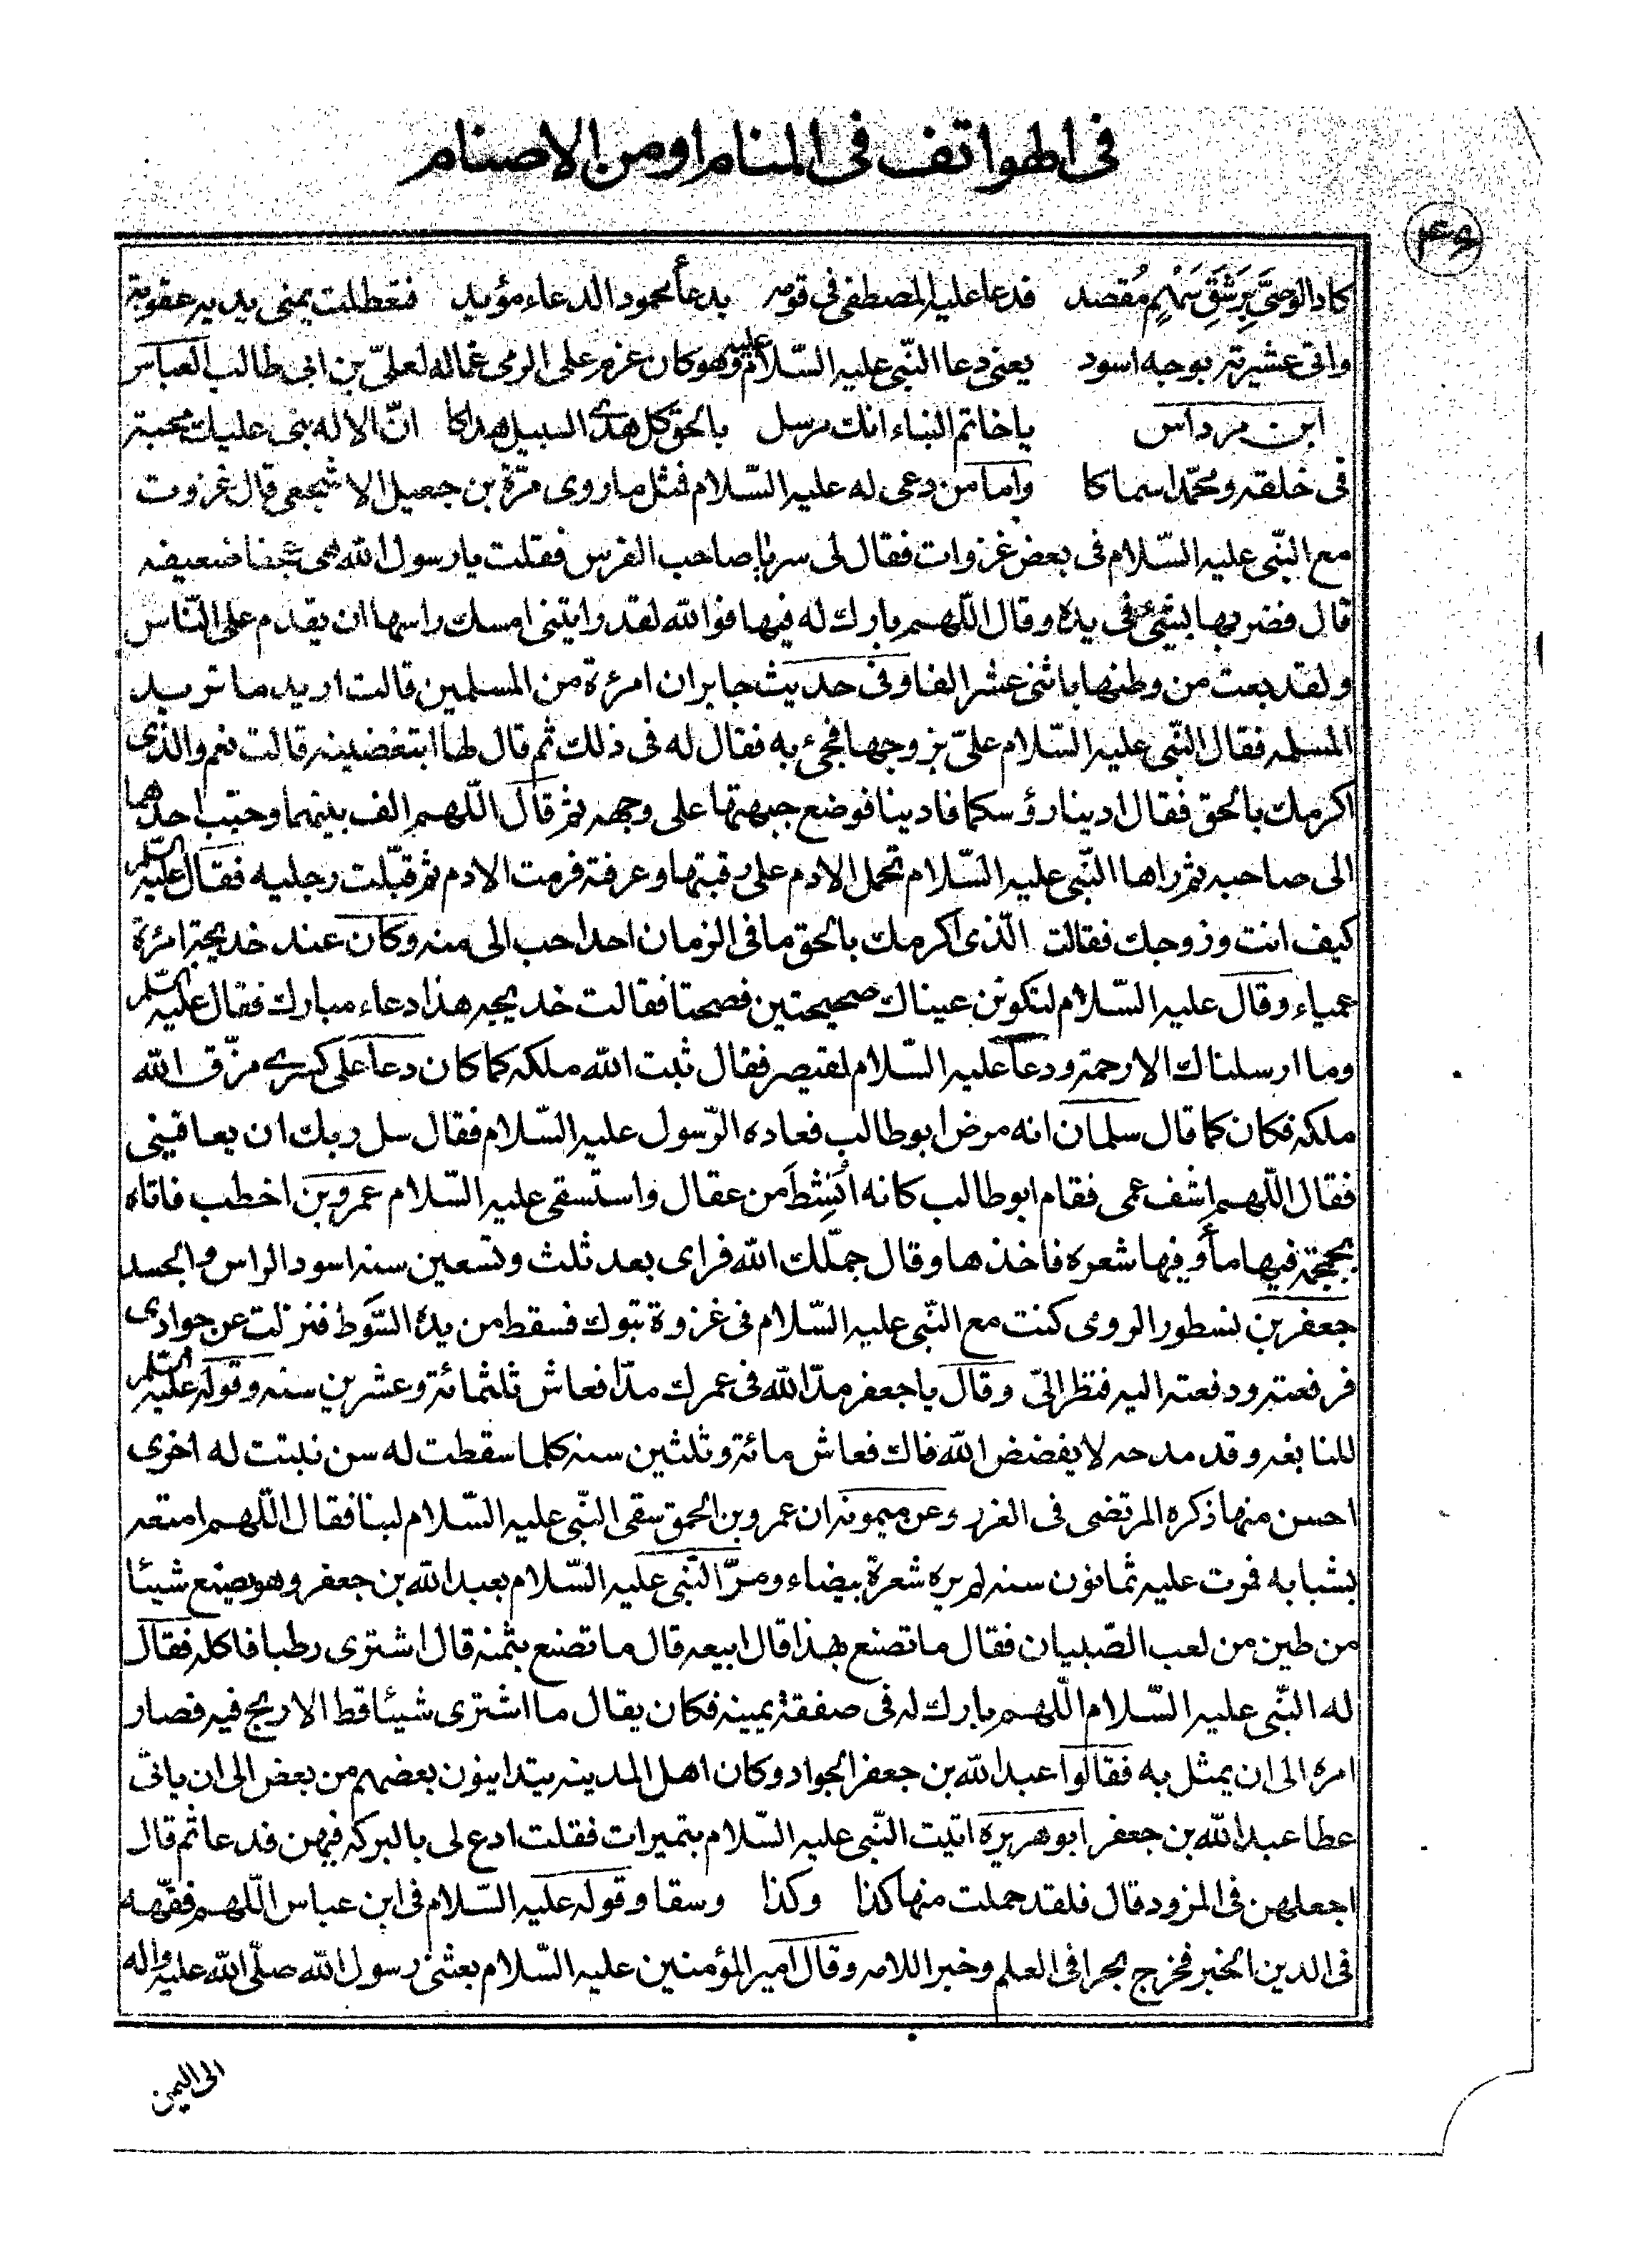 فى الهواتف فى المنام او من الاصنام
كاد الوصىَّ بِرَشْقِ سَهْمٍ مُقصد فدعا عليه المصطفى فى قومه بدعاء محمود الدعاء مؤيد فتعطلت يمنى يديه عقوبة
واتى عشيرته بوجه اسود يعنى دعا النّبى عليه السّلام عليه وهو كان عزم على الرمى غماله لعلىّ بن ابى طالب العباس
ابن مرداس يا خاتم النباء انك مرسل بالحق كل هدى السبيل هداكا انّ الاله بنى عليك محبة
فى خلقه ومحمّدا سماكا واما من دعى له عليه السّلام فمثل ما روى مرّة بن جعيل الاشجعى قال غزوت
مع النّبى عليه السّلام فى بعض غزوات فقال لى سر يا صاحب الفرس فقلت يا رسول الله هى عجفا ضعيفه
قال فضربها بشئ فى يده وقال اللّهم بارك له فيها فوالله لقد رايتنى امسك راسها ان يقدم على النّاس
ولقد بعت من وطنها باثنى عشر الفا وفى حديث جابر ان امرءة من المسلمين قالت اريد ما تريد
المسلمه فقال النّبى عليه السّلام علىّ بزوجها فجئ به فقال له فى ذلك ثم قال لها ابتغضينه قالت نعم والذى
اكرمك بالحق فقال ادينا رؤسكما فادينا فوضع جبهتها على وجهه ثم قال اللّهم الف بينهما وحبّب احدهما
الى صاحبه ثم راها النّبى عليه السّلام تحمل الادم على رقبتها وعرفته فرمت الادم ثم قبّلت رجليه فقال عليه السّلم
كيف انت وزوجك فقالت الّذى اكرمك بالحق ما فى الزمان احد احب الى منه وكان عند خديجة امرءة
عمياء وقال عليه السّلام لتكونن عيناك صحيحتين فصحتا فقالت خديجه هذا دعاء مبارك فقال عليه السّلم
وما ارسلناك الا رحمة ودعا عليه السّلام لقيصر فقال ثبت الله ملكه كما كان ودعا على كسرى مزّق الله
ملكه فكان كما قال سلمان انه مرض ابو طالب فعاده الرّسول عليه السّلام فقال سل ربك ان يعافينى
فقال اللّهم اشف عمى فقام ابو طالب كانه اُنْشِطَ من عقال واستسقى عليه السّلام عمرو بن اخطب فاتاه
بجمجمة فيها ماء وفيها شعره فاخذها وقال جمّلك الله فراى بعد ثلث وتسعين سنه اسود الراس والجسد
جعفر بن نسطور الرومى كنت مع النّبى عليه السّلام فى غزوة تبوك فسقط من يده السّوط فنزلت عن جوادى
فرفعته ودفعته اليه فنظر الىّ وقال يا جعفر مدّ الله فى عمرك مدّا فعاش ثلثمائة وعشرين سنه وقوله عليه السّلم
للنابغه وقد مدحه لا يفضض الله فاك فعاش مائة وثلثين سنه كلما سقطت له سن نبتت له اخرى
احسن منها ذكره المرتضى فى الغرر وعن ميمونه ان عمرو بن الحمق سقى النّبى عليه السّلام لبنا فقال اللّهم امتعه
بشبابه فمرت عليه ثمانون سنه لم يره شعرة بيضاء ومرّ النّبى عليه السّلام بعبد الله بن جعفر وهو يصنع شيئا
من طين من لعب الصّبيان فقال ما تصنع بهذا قال ابيعه قال ما تصنع بثمنه قال اشترى رطبا فاكله فقال
له النّبى عليه السّلام اللّهم بارك له فى صفقة يمينه فكان يقال ما اشترى شيئا قط الا ربح فيه فصار
امره الى ان يمثل به فقالوا عبد الله بن جعفر الجواد وكان اهل المدينه يتداينون بعضهم من بعض الى ان ياتى
عطا عبد الله بن جعفر ابو هريره اتيت النّبى عليه السّلام بتميرات فقلت ادع لى بالبركة فيهن فدعا ثم قال
اجعلهن فى المزود قال فلقد حملت منها كذا وكذا وسقا وقوله عليه السّلام فى ابن عباس اللّهم فقّهه
فى الدين الخبر فخرج بحرا فى العلم وخبر اللامه وقال امير المؤمنين عليه السّلام بعثنى رسول الله صلّى الله عليه واله
الى اليمن